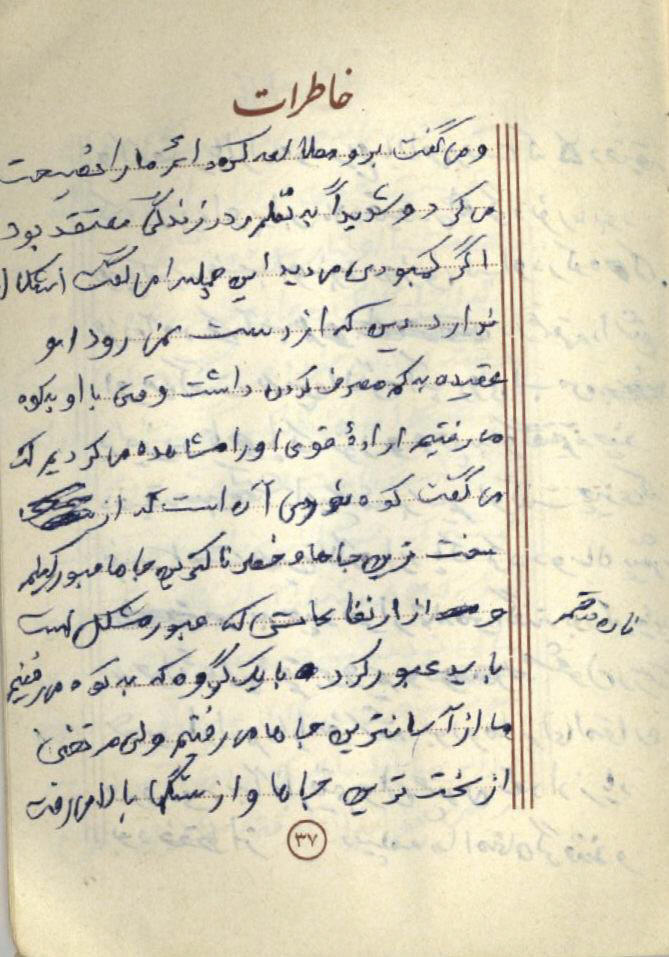 خاطرات
و می گفت برو مطالعه کرد اکثر ما را نصیحت
می کرد و شدیداً به نظم در زندگی معتقد بود
اگر کمبودی می دید این جمله را می گفت اشکال
ندارد دین که از دست نمی رود او
عقیده به کم مصرف کردن داشت وقتی با او به کوه
می رفتیم ارادهٔ قوی او را مشاهده می کردیم که
می گفت کوه نوردی آن است که از
سخت ترین جاها و خطرناکترین جاها عبور کنیم
و از ارتفاعاتی که عبور مشکل است
باید عبور کرد با یک گروه که به کوه می رفتیم
ما از آسانترین جاها می رفتیم ولی مرتضی
از سخت ترین جاها و از سنگها بالا می رفت
۳۷